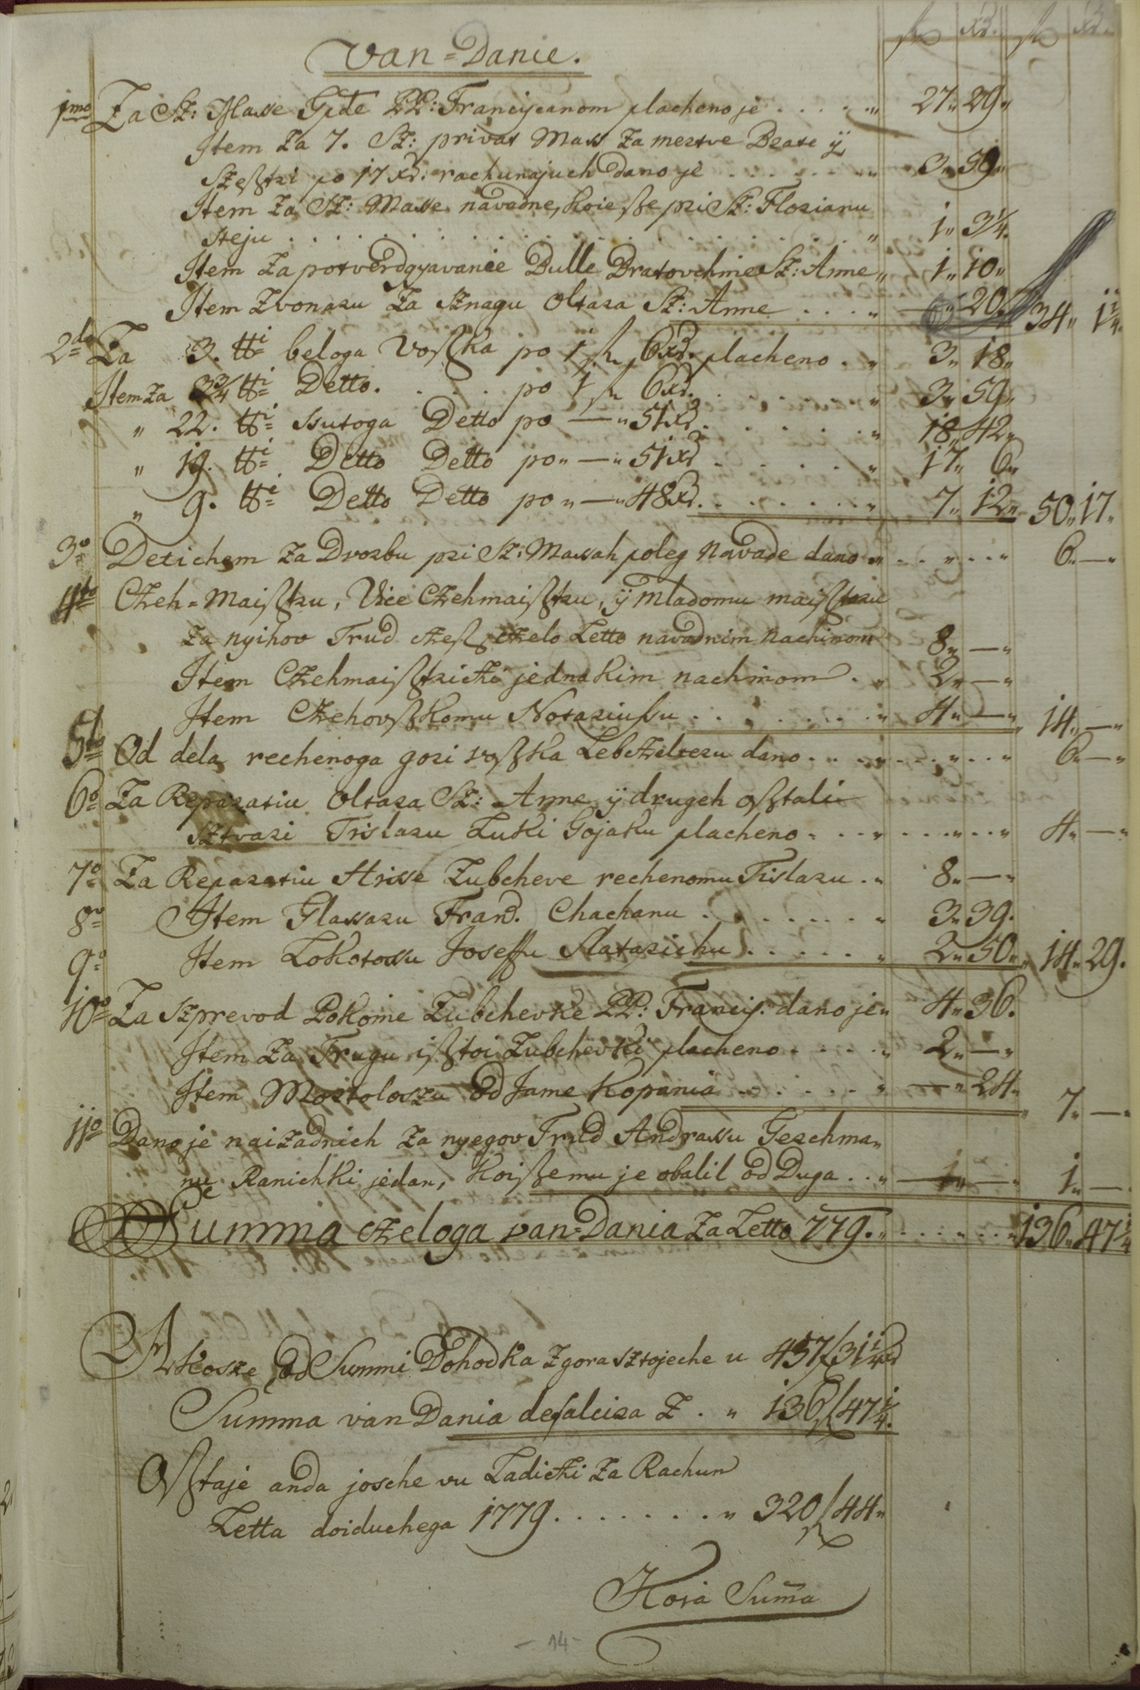 fl xr. fl xr.
Van=Danie.
1mo Za Sz: Masse Gde PP: Franciscanom placheno je . . . . . „ 27„ 29„
Item Za 7. Sz: privat Mass Za mertve Brate ÿ
Szesztri po 17 xr: rachunajuch dano je . . . . . . . „ 3„ 59„
Item Za Sz: Masse navadne, koie sze pri Sz: Florianu
steju . . . . . . . . . . . „ 1„ 3¼.
Item Za potverdgyavanie Bulle Bratovchine Sz: Anne „ 1„ 10„
Item Zvonaru Za Sznagu Oltara Sz: Anne . . . . „ 20„ 34„ 1¼„
2do Za 3. ℔i beloga Voszka po 1 fl 6 xr. placheno . „ 3„ 18„
Item Za 3¾ ℔i Detto. . . . . po 1 fl 6 xr. . . . . „ 3„ 59„
„ 22. ℔i sutoga Detto po — „ 51 xr. . . . . . „ 18„ 42„
„ 19. ℔i Detto Detto po „ — „ 51 xr . . . . . „ 17„ 6„
„ 9. ℔i Detto Detto po „ — „ 48 xr. . . . . . . „ 7„ 12„ 50„ 17„
3o Detichem Za Dvorbu pri Sz: Massah poleg Navade dano „ . . „ . . . 6„ —„
4to Czeh=Maisztru, Vice Czehmaisztru, ÿ Mladomu maisztru
Za nyihov Trud czesz czelo Letto navadnim nachinom 8„ —„
Item Czehmaisztricki jednakim nachinom . „ 2„ —„
Item Czehovszkomu Notariussu . . . . . . . . „ 4„ —„ 14„ —„
5to Od dela rechenoga gori voszka Lebczelteru dano . . . . . . . . „ 6„ —„
6o Za Reparatiu Oltara Sz: Anne ÿ drugeh osztali
sztvari Tislaru Luki Gojaku placheno . . . „ . . . . . „ 4„ —„
7o Za Reparatiu Hisse Zubcheve rechenomu Tislaru . „ 8„ —„
8o Item Glassaru Frand. Chachanu . . . . . . . „ 3„ 39.
9o Item Lokotossu Joseffu Slatarichu . . . . . „ 2„ 50„ 14„ 29.
10o Za Szprevod Pokoine Zubchevke PP: Francis: dano je „ 4„ 36.
Item Za Trugu isztoi Zubchevki placheno . . . . „ 2„ —„
Item Mortolosu Od Jame Kopania . . . . . . „ —„ 24„ 7„ —„
11o Dano je naizadnich Za nyegov Trud Andrassu Gerchma„
nu Ranichki jedan, koi sze mu je obalil od Duga . . „ —1„— 1„ —
Summa czeloga van=Dania Za Letto 779. „ . . . . . . „ 136„ 47¼
Akosze Od Summi Dohodka Zgora sztojeche u 457 fl 31¼ xr
Summa van Dania defalcira Z . „ 136 fl 47¼.
Osztaje anda josche vu Ladicki Za Rachun
Letta doiduchega 1779. . . . . . . . „ 320 fl 44„
Hoia Suma
- 14 -